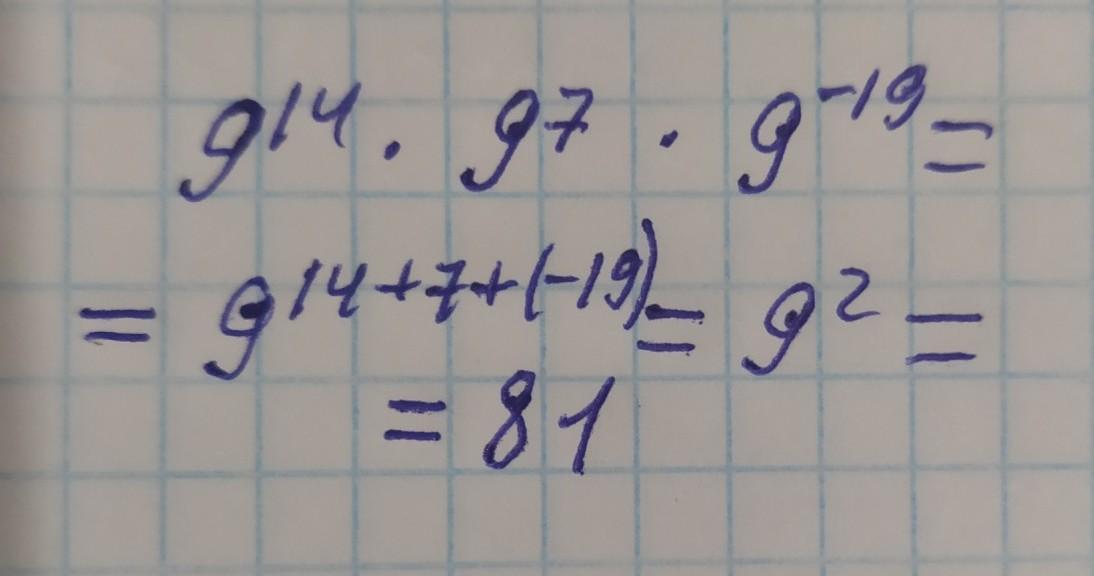 9¹⁴ · 9⁷ · 9⁻¹⁹ =
= 9¹⁴⁺⁷⁺⁽⁻¹⁹⁾ = 9² =
= 81